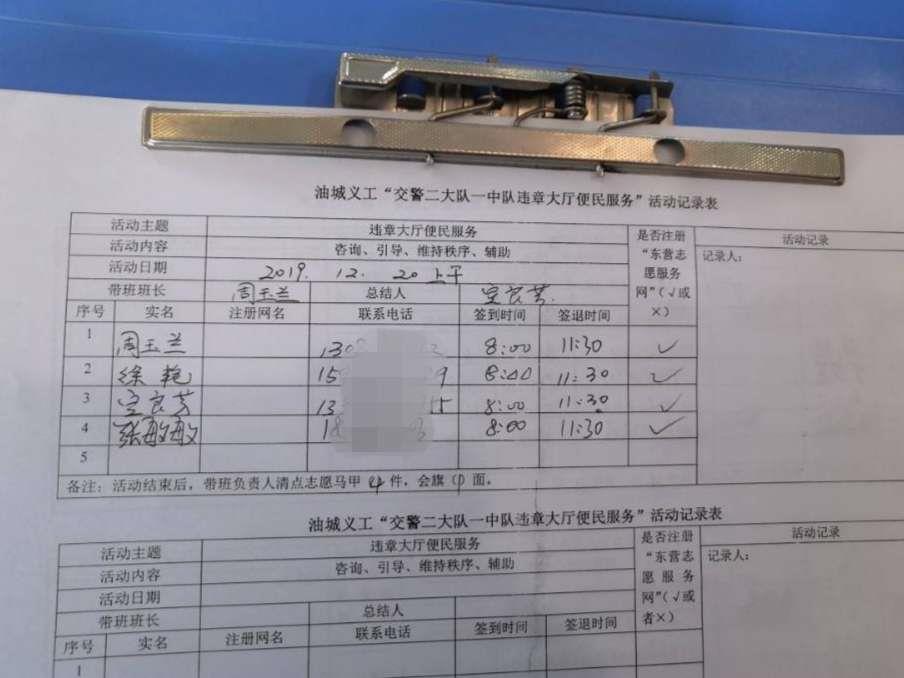 油城义工“交警二大队一中队违章大厅便民服务”活动记录表
活动主题 违章大厅便民服务 是否注册“东营志愿服务网”(√或×) 活动记录
活动内容 咨询、引导、维持秩序、辅助 记录人:
活动日期 2019. 12. 20上午
带班班长 周玉兰 总结人 良芳
序号 实名 注册网名 联系电话 签到时间 签退时间
1 周玉兰 130 8:00 11:30 ✓
2 徐艳 15 9 8:00 11:30 ✓
3 良芳 13 5 8:00 11:30 ✓
4 张敏敏 18 8:00 11:30 ✓
5
备注: 活动结束后,带班负责人清点志愿马甲 4 件,会旗 面。
油城义工“交警二大队一中队违章大厅便民服务”活动记录表
活动主题 违章大厅便民服务 是否注册“东营志愿服务网”(√或者×) 活动记录
活动内容 咨询、引导、维持秩序、辅助 记录人:
活动日期
带班班长 总结人
序号 实名 注册网名 联系电话 签到时间 签退时间
1